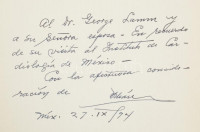 Al Dr. George Lamm y
a su Señora esposa - En recuerdo
de su visita al Instituto de Car-
diología de México -
Con la afectuosa conside-
ración de
Méx. 27.IX/74